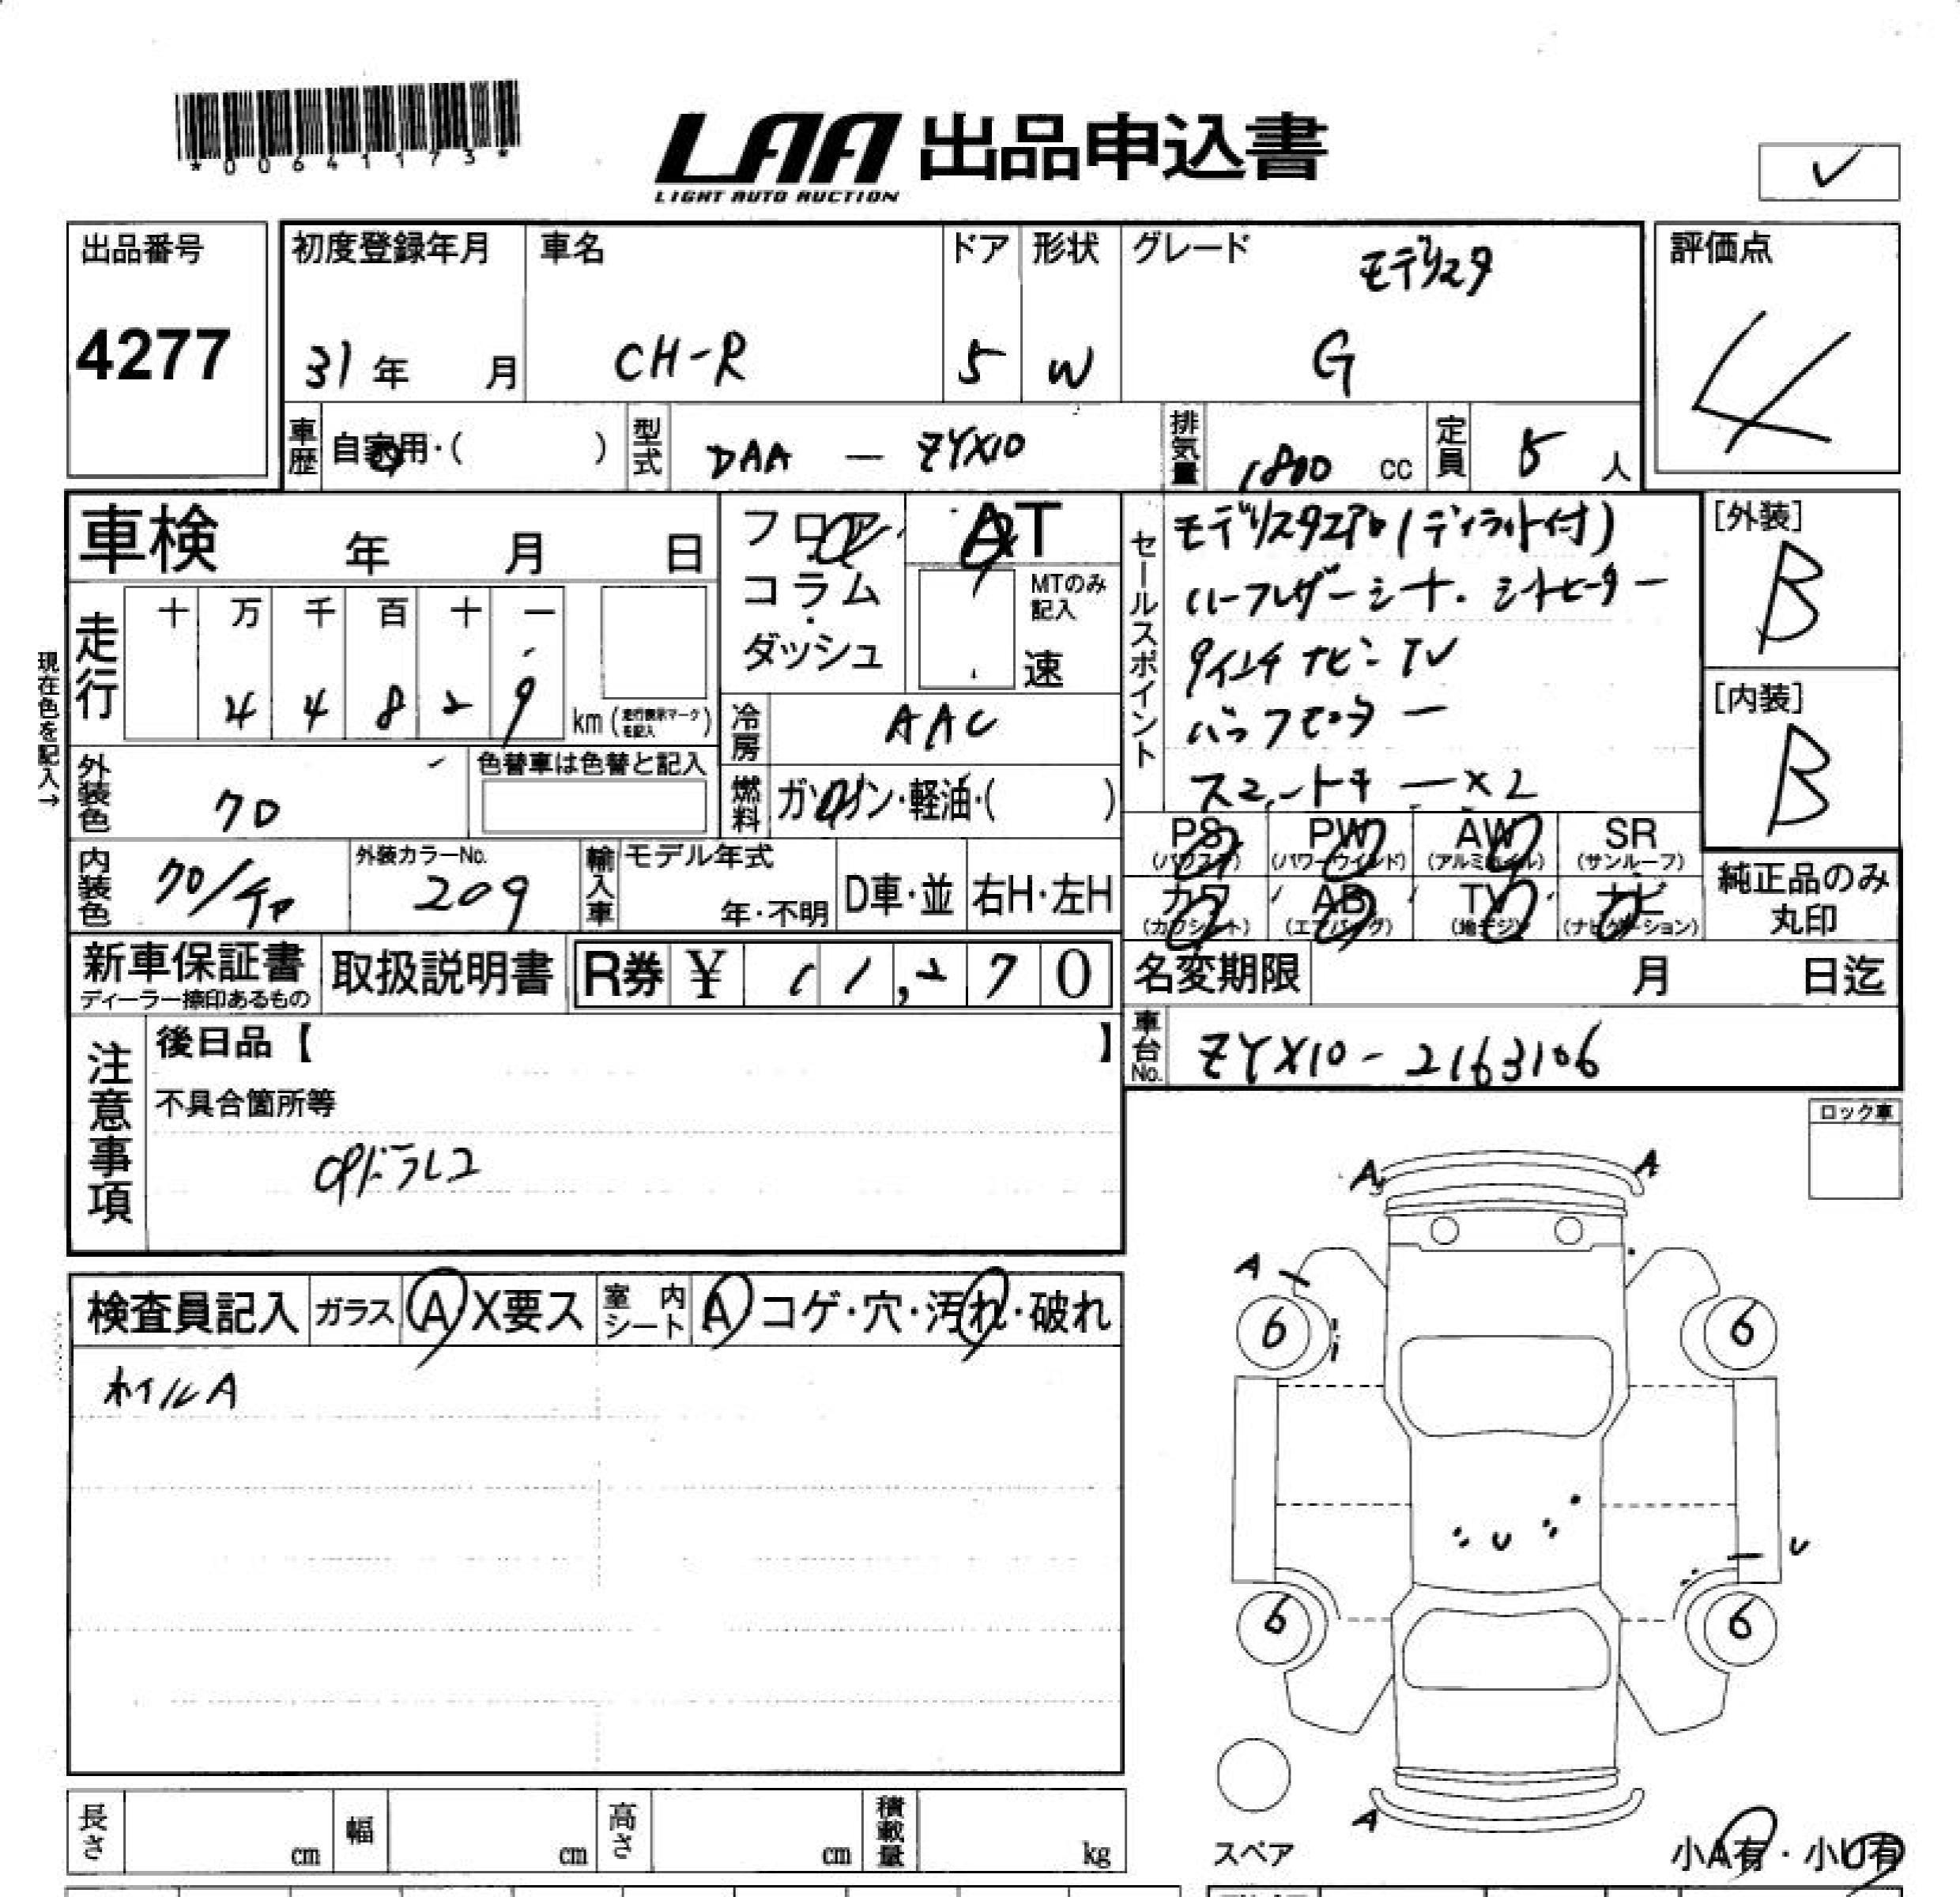 *00641173*
LAA 出品申込書
LIGHT AUTO AUCTION
出品番号
4277
初度登録年月
31年 月
車名
CH-R
ドア
5
形状
W
グレード
モデリスタ
G
評価点
4
車歴 自家用・( )
型式 DAA — ZYX10
排気量 1800 cc
定員 5 人
車検 年 月 日
フロア
コラム
・
ダッシュ
AT
MTのみ
記入
速
セールスポイント
モデリスタエアロ(デイライト付)
ハーフレザーシート・シートヒーター
9インチナビ・TV
バックモニター
スマートキー×2
[外装]
B
[内装]
B
現在色を記入→
走行
十 万 千 百 十 一
4 4 8 2 9
km(走行表示マークを記入)
冷房 AAC
外装色 クロ
色替車は色替と記入
燃料 ガソリン・軽油・( )
PS (パワステ)
PW (パワーウインド)
AW (アルミホイル)
SR (サンルーフ)
カワ (カワシート)
AB (エアバッグ)
TV (地デジ)
ナビ (ナビゲーション)
純正品のみ
丸印
内装色 クロ/チャ
外装カラーNo.
209
輸入車
モデル年式
年・不明
D車・並
右H・左H
新車保証書
ディーラー捺印あるもの
取扱説明書
R券 ¥ 11,270
名変期限 月 日迄
車台No. ZYX10-2163106
注意事項
後日品【 】
不具合箇所等
ドラレコ
ロック車
検査員記入
ガラス A X要ス
室内シート A コゲ・穴・汚れ・破れ
ホイルA
A
A
A
6
6
U
U
6
6
A
スペア
小A有・小U有
長さ cm
幅 cm
高さ cm
積載量 kg